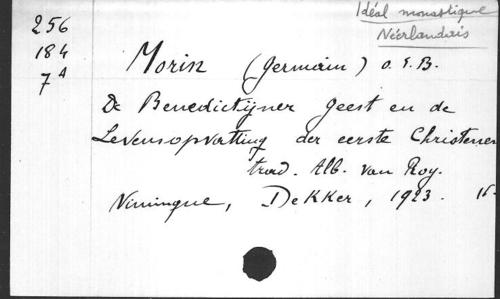 Idéal monastique
Néerlandais
256
184
7A
Morin (Germain) O.S.B.
De Benedictijner geest en de
Levensopvatting der eerste Christenen
trad. Alb. van Roy.
Nimingue, Dekker, 1923. 16-